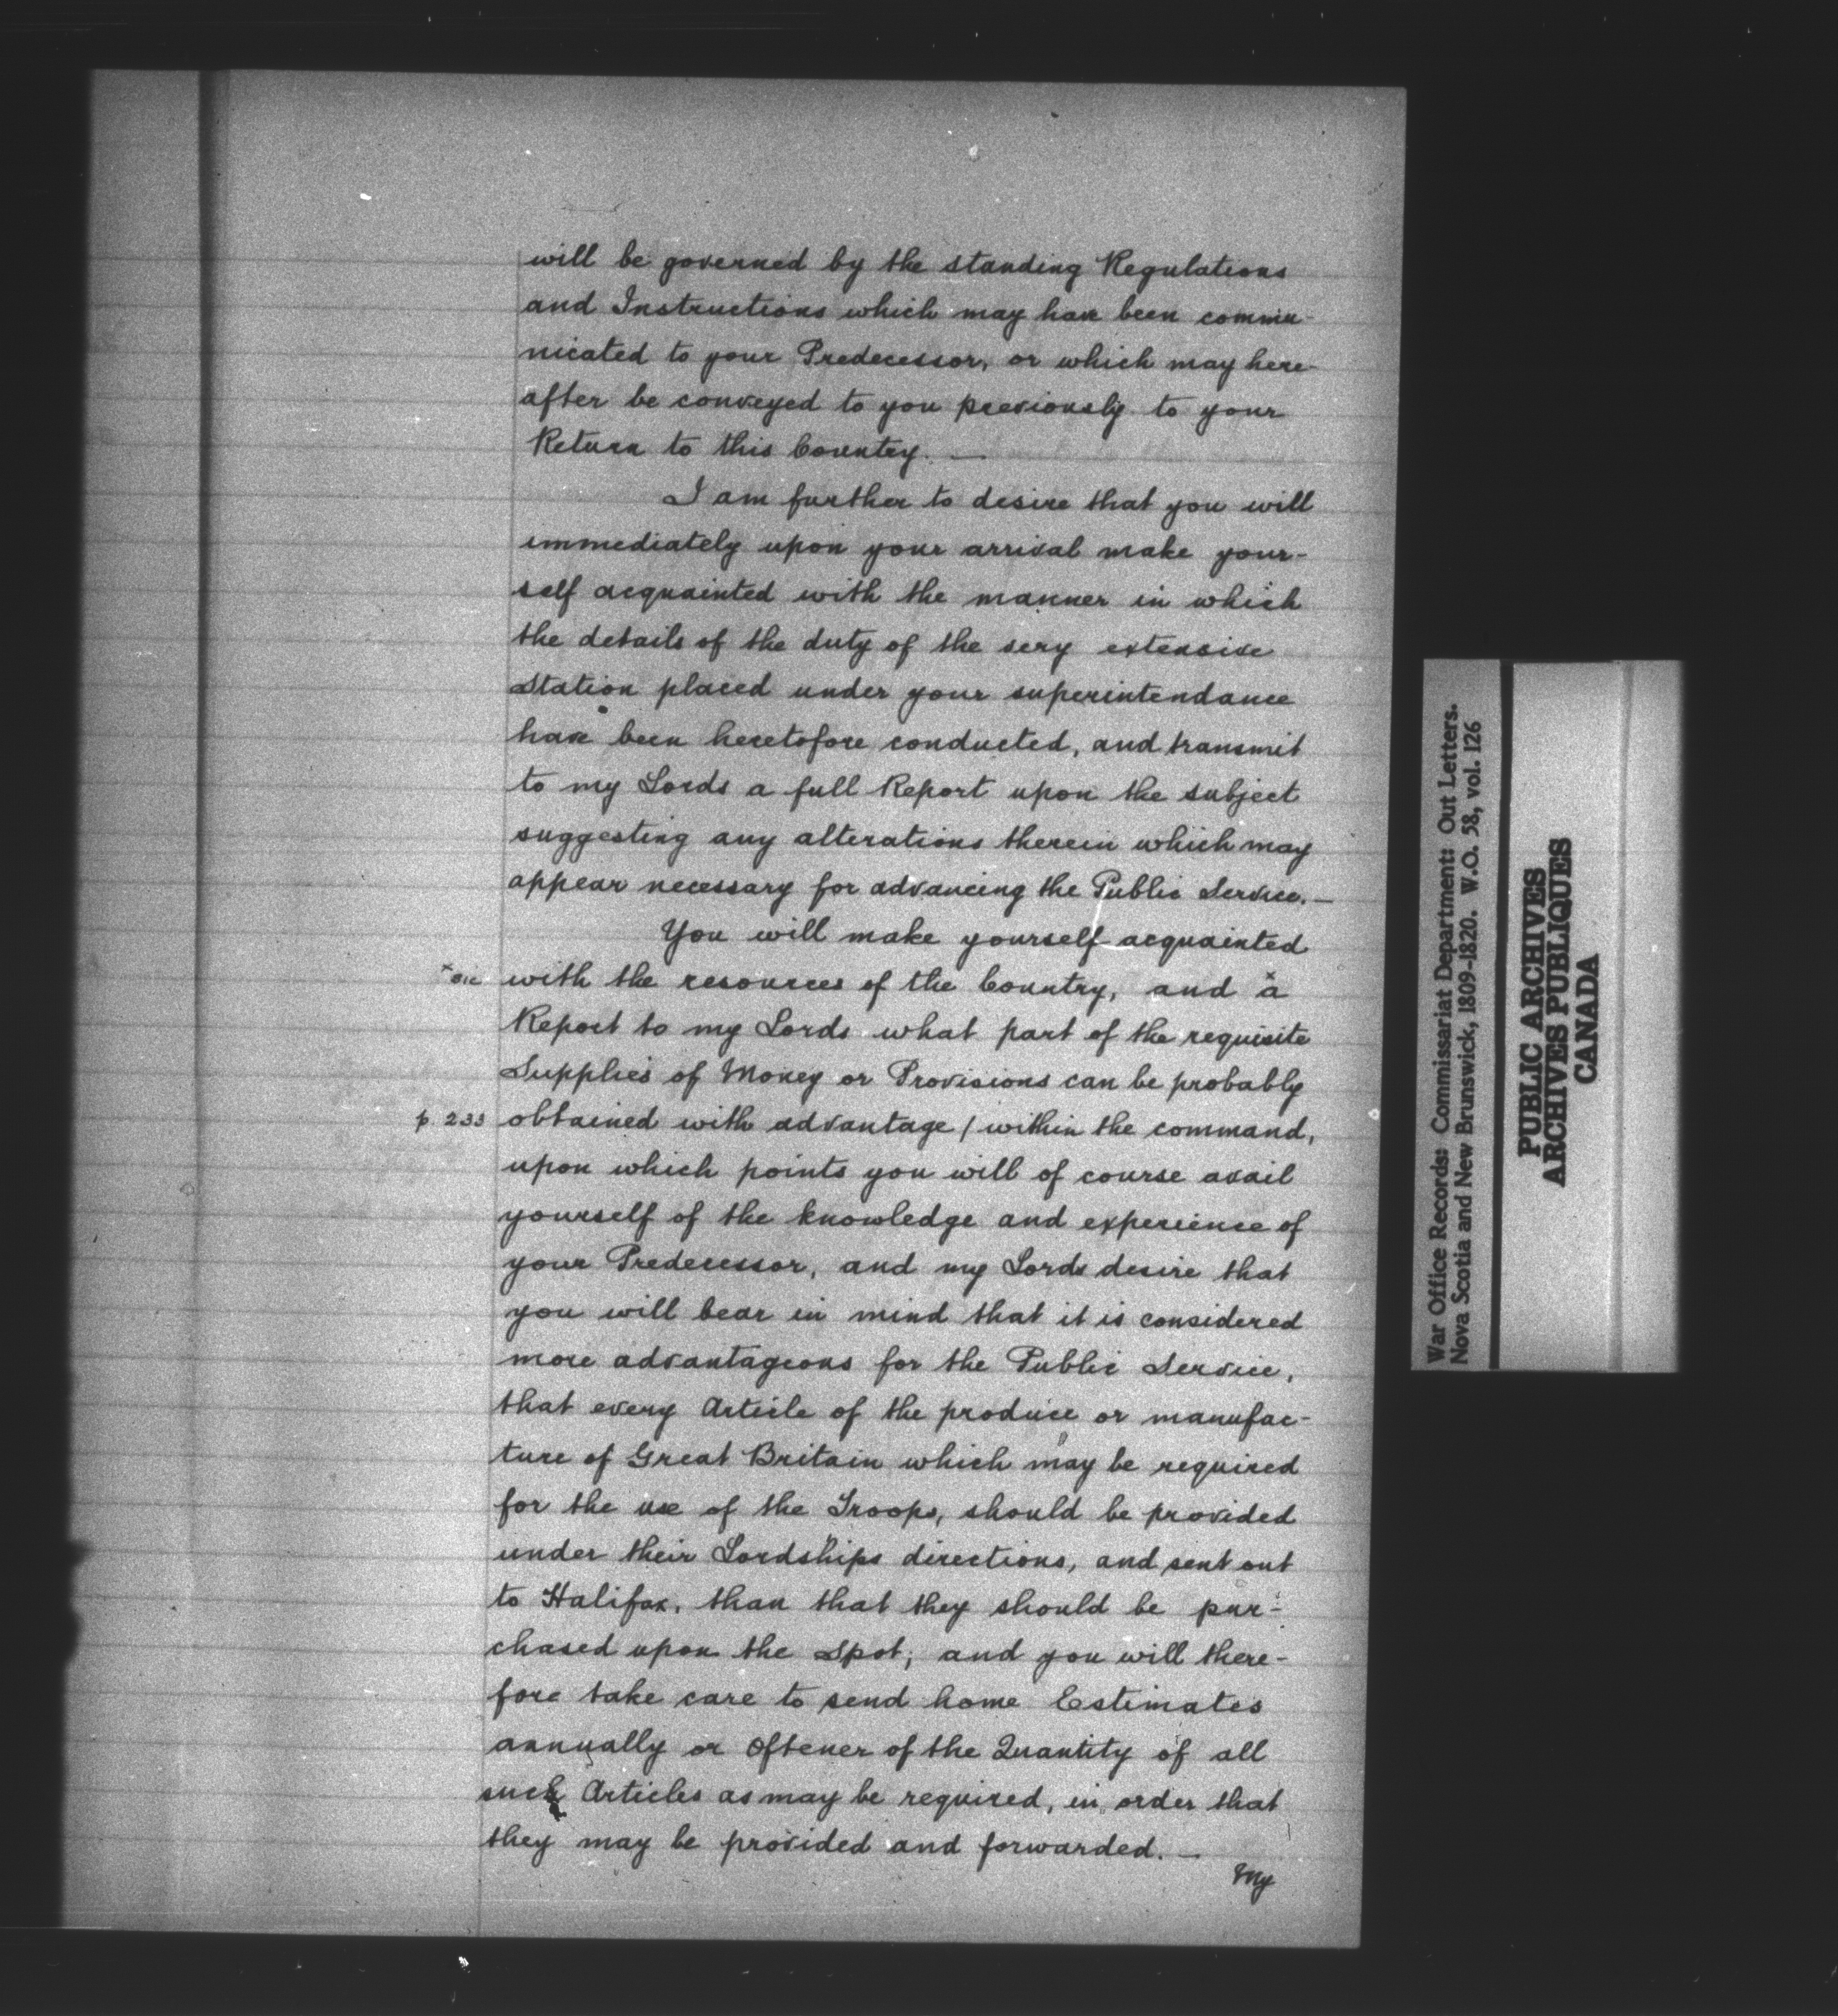 will be governed by the standing Regulations
and Instructions which may have been commu-
nicated to your Predecessor, or which may here-
after be conveyed to you previously to your
Return to this Country. —
I am further to desire that you will
immediately upon your arrival make your-
self acquainted with the manner in which
the details of the duty of the very extensive
Station placed under your superintendance
have been heretofore conducted, and transmit
to my Lords a full Report upon the subject
suggesting any alterations therein which may
appear necessary for advancing the Public Service. —
You will make yourself acquainted
x sic with the resources of the Country, and a x
Report to my Lords what part of the requisite
Supplies of Money or Provisions can be probably
p. 233 obtained with advantage / within the command,
upon which points you will of course avail
yourself of the knowledge and experience of
your Predecessor, and my Lords desire that
you will bear in mind that it is considered
more advantageous for the Public Service,
that every Article of the produce or manufac-
ture of Great Britain which may be required
for the use of the Troops, should be provided
under their Lordships directions, and sent out
to Halifax, than that they should be pur-
chased upon the Spot; and you will there-
fore take care to send home Estimates
annually or oftener of the Quantity of all
such Articles as may be required, in order that
they may be provided and forwarded. —
My
War Office Records: Commissariat Department: Out Letters.
Nova Scotia and New Brunswick, 1809-1820. W.O. 58, vol. 126
PUBLIC ARCHIVES
ARCHIVES PUBLIQUES
CANADA